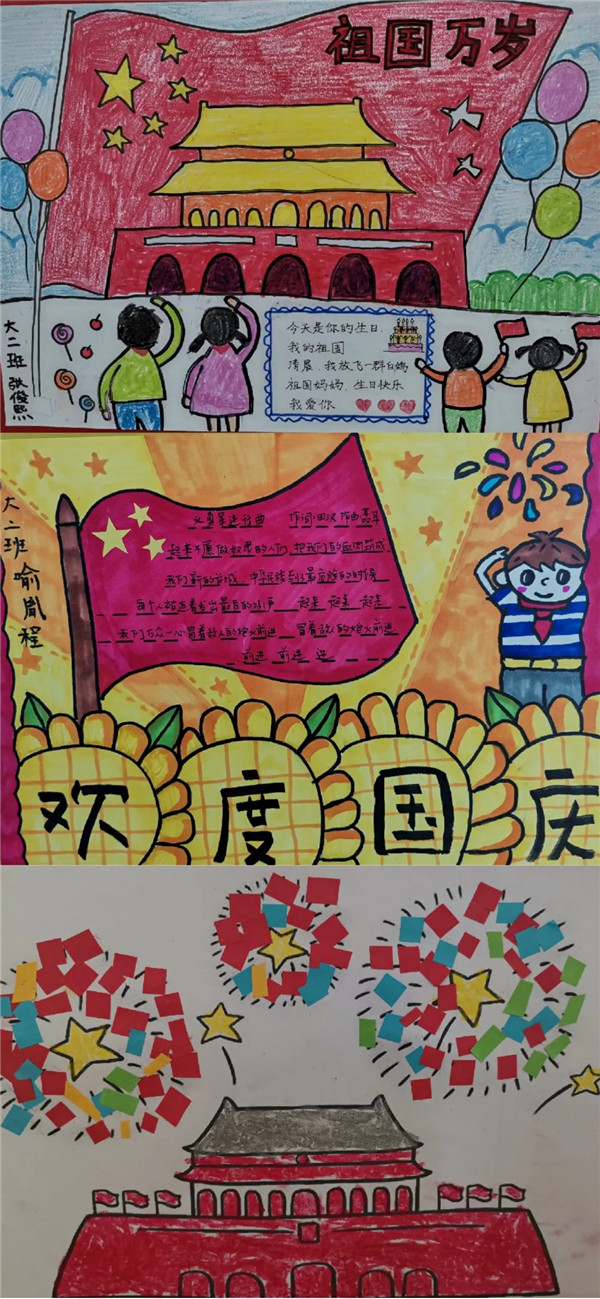 祖国万岁
大二班 张俊熙
今天是你的生日,
我的祖国
清晨,我放飞一群白鸽
祖国妈妈,生日快乐
我爱你
大二班 喻胤程
义勇军进行曲 作词:田汉 作曲:聂耳
起来不愿做奴隶的人们 把我们的血肉筑成
我们新的长城 中华民族到了最危险的时候
每个人被迫着发出最后的吼声 起来 起来 起来
我们万众一心冒着敌人的炮火前进 冒着敌人的炮火前进
前进 前进 进
欢度国庆